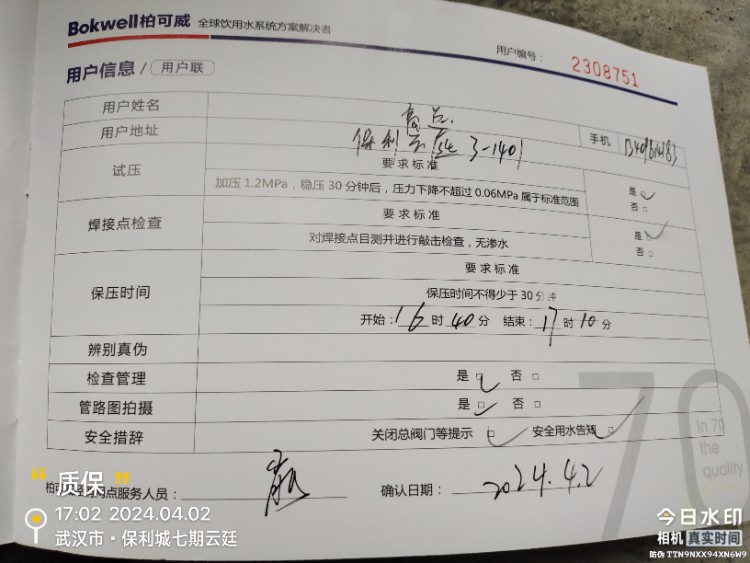 Bokwell柏可威 全球饮用水系统方案解决者
用户编号： 2308751
用户信息 / 用户联
用户姓名
用户地址 保利云 3-1401 手机
试压 要求标准
加压1.2MPa，稳压30分钟后，压力下降不超过0.06MPa属于标准范围 是 否
焊接点检查 要求标准
对焊接点目测并进行敲击检查，无渗水 是 否
保压时间 要求标准
保压时间不得少于30分钟
开始：16时40分 结束：17时10分
辨别真伪
检查管理 是 否
管路图拍摄 是 否
安全措辞 关闭总阀门等提示 安全用水告知
服务人员： 确认日期：2024.4.2
In 70
the
quality
70
质保
17:02 2024.04.02
武汉市·保利城七期云廷
今日水印
相机 真实时间
防伪 TTN9NXX94XN6W9